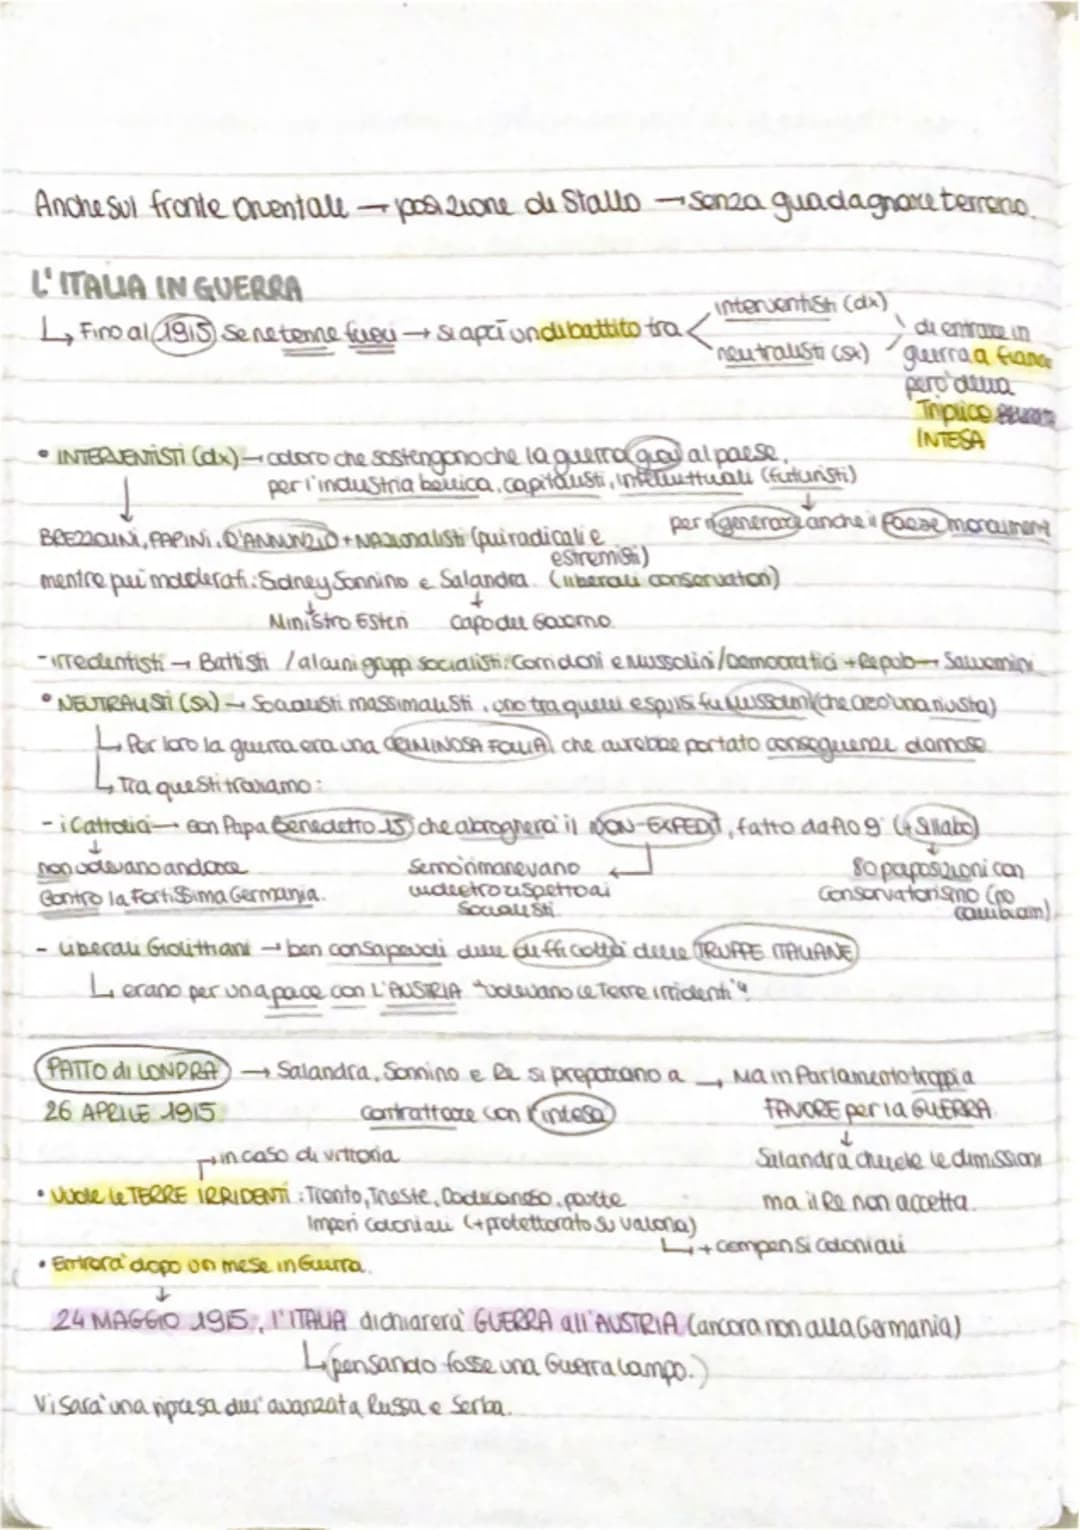 Anche sul fronte orientale → posizione di Stallo → senza guadagnare terreno.
L'ITALIA IN GUERRA
↳ Fino al 1915 se ne tenne fuori → si aprì un dibattito tra < interventisti (dx)
neutralisti (sx)
di entrare in
guerra a fianco
però della
Triplice
INTESA
• INTERVENTISTI (dx) → coloro che sostengono che la guerra giovi al paese,
per l'industria bellica, capitalisti, intellettuali (futuristi)
↓
per rigenerare anche il Paese moralmente
PREZZOLINI, PAPINI, D'ANNUNZIO + Nazionalisti (più radicali e
estremisti)
mentre più moderati: Sidney Sonnino e Salandra. (liberali conservatori)
↓ ↓
Ministro Esteri Capo del Governo
- irredentisti → Battisti / alcuni gruppi socialisti: Corridoni e Mussolini / Democratici + Repub → Salvemini
• NEUTRALISTI (sx) → Socialisti massimalisti, uno tra quelli espulsi fu Mussolini (che creò una rivista)
↳ Per loro la guerra era una CRIMINOSA FOLLIA, che avrebbe portato conseguenze dannose
↳ Tra questi troviamo:
- i Cattolici → con Papa Benedetto 15 che abrogherà il NON-EXPEDIT, fatto da Pio 9 (+ Sillabo)
↓
non volevano andare
contro la Fortissima Germania.
Semó rimanevano
indietro rispetto ai
Socialisti
↓
80 proposizioni con
conservatorismo (no
cambiam)
- Liberali Giolittiani → ben consapevoli delle difficoltà delle TRUPPE ITALIANE
↳ erano per una pace con L'AUSTRIA "volevano le Terre irridenti"
PATTO di LONDRA → Salandra, Sonnino e Re si preparano a → Ma in Parlamento troppi a
26 APRILE 1915 contrattare con l'intesa FAVORE per la GUERRA.
↓
in caso di vittoria Salandra chiede le dimissioni
• Vuole le TERRE IRRIDENTI: Trento, Trieste, Dodecaneso, parte ma il Re non accetta.
Imperi coloniali (+ protettorato su Valona)
↳ + compensi coloniali
• Entrerà dopo un mese in Guerra.
↓
24 MAGGIO 1915, l'ITALIA dichiarerà GUERRA all'AUSTRIA (ancora non alla Germania)
↳ (pensando fosse una Guerra lampo.)
Vi sarà una ripresa dell'avanzata Russa e Serba.